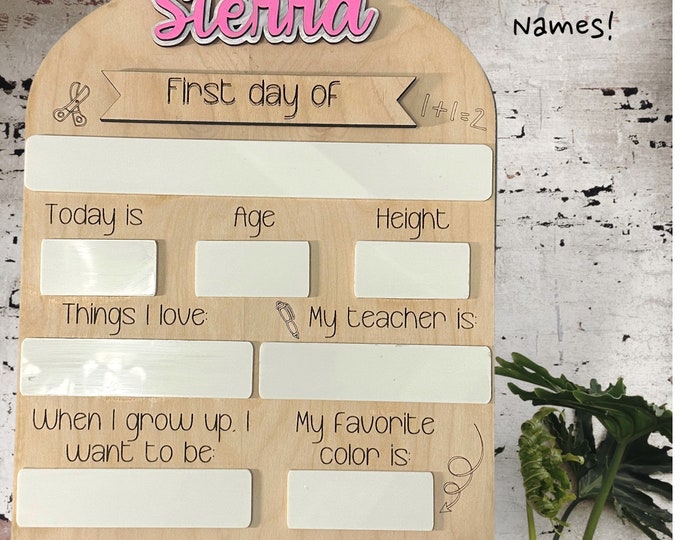 Sierra
Names!
First day of
1+1=2
Today is
Age
Height
Things I love:
My teacher is:
When I grow up, I
want to be:
My favorite
color is: